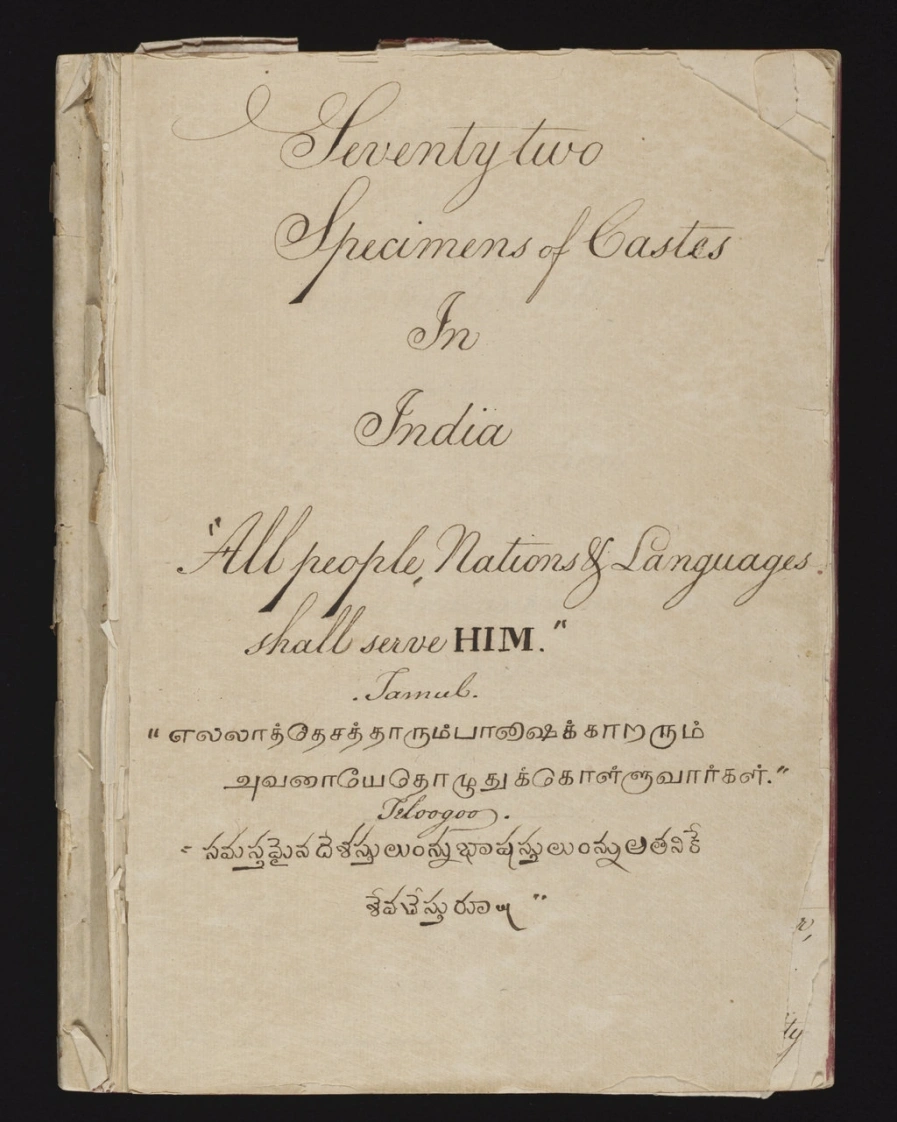 Seventy two
Specimens of Castes
In
India
"All people, Nations & Languages
shall serve HIM."
Tamul.
"எல்லாத்தேசத்தாரும்பாஷைக்காறரும்
அவனாயேதொழுதுக்கொள்ளுவார்கள்."
Teloogoo.
సమస్తమైన దేశస్తులుంన్ను భాషస్తులుంన్ను అతనికే
శేవచేస్తురూ
ty